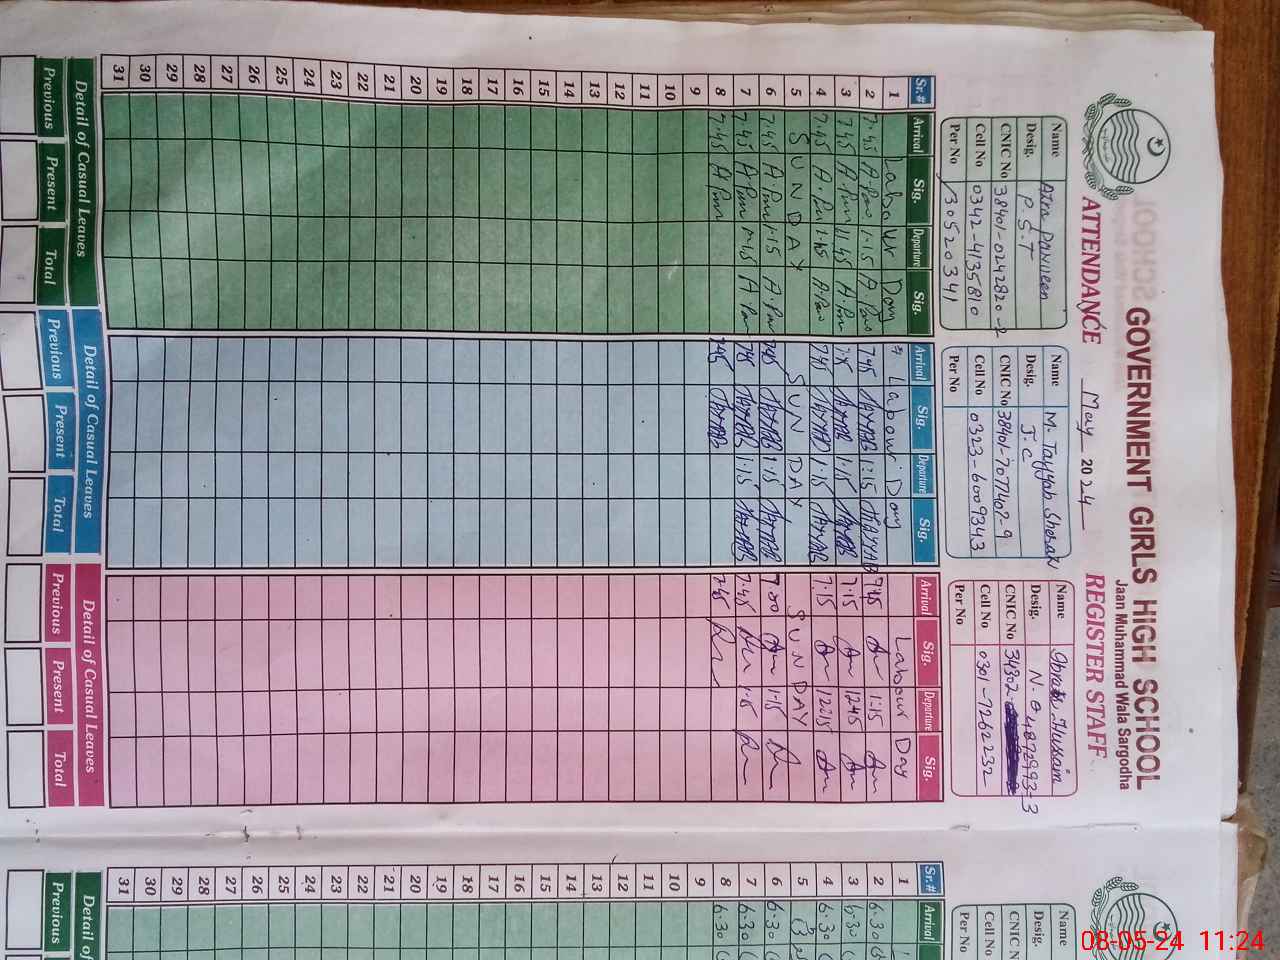 GOVERNMENT GIRLS HIGH SCHOOL
Jaan Muhammad Wala Sargodha
ATTENDANCE May 2024 REGISTER STAFF
Name Parveen
Desig. P.S.T
CNIC No 38401-0242820-2
Cell No 0342-4135810
Per No 30520341
Name M. Tayyab
Desig. J.C
CNIC No 38401-7077407-9
Cell No 0323-6009343
Per No
Name Hussain
Desig. N.
CNIC No 34302 4872993-3
Cell No 0301-7262232
Per No
Sr.# Arrival Sig. Departure Sig. Arrival Sig. Departure Sig. Arrival Sig. Departure Sig.
1 Labour Day Labour Day Labour Day
2 7:45 A.Par 1:15 A.Par 7:45 TAYYAB 1:15 TAYYAB 7:45 1:15
3 7:45 A.Par 11:45 A.Par TAYYAB 1:15 TAYYAB 7:15 12:45
4 7:45 A.Par 1:15 A.Par 7:45 TAYYAB 1:15 TAYYAB 7:15 12:15
5 SUNDAY SUNDAY SUNDAY
6 7:45 A.Par 1:15 A.Par 7:45 TAYYAB 1:15 TAYYAB 7:00 1:15
7 7:45 A.Par 1:15 A.Par 7:45 TAYYAB 1:15 TAYYAB 7:45 1:15
8 7:45 A.Par 7:45 TAYYAB 7:45
9
10
11
12
13
14
15
16
17
18
19
20
21
22
23
24
25
26
27
28
29
30
31
Detail of Casual Leaves Detail of Casual Leaves Detail of Casual Leaves
Previous Present Total Previous Present Total Previous Present Total
Name
Desig.
CNIC No
Cell No
Per No
Sr.# Arrival
1
2 6:30
3 6:30
4 6:30
5
6 6:30
7 6:30
8 6:30
9
10
11
12
13
14
15
16
17
18
19
20
21
22
23
24
25
26
27
28
29
30
31
Detail of
Previous
08-05-24 11:24